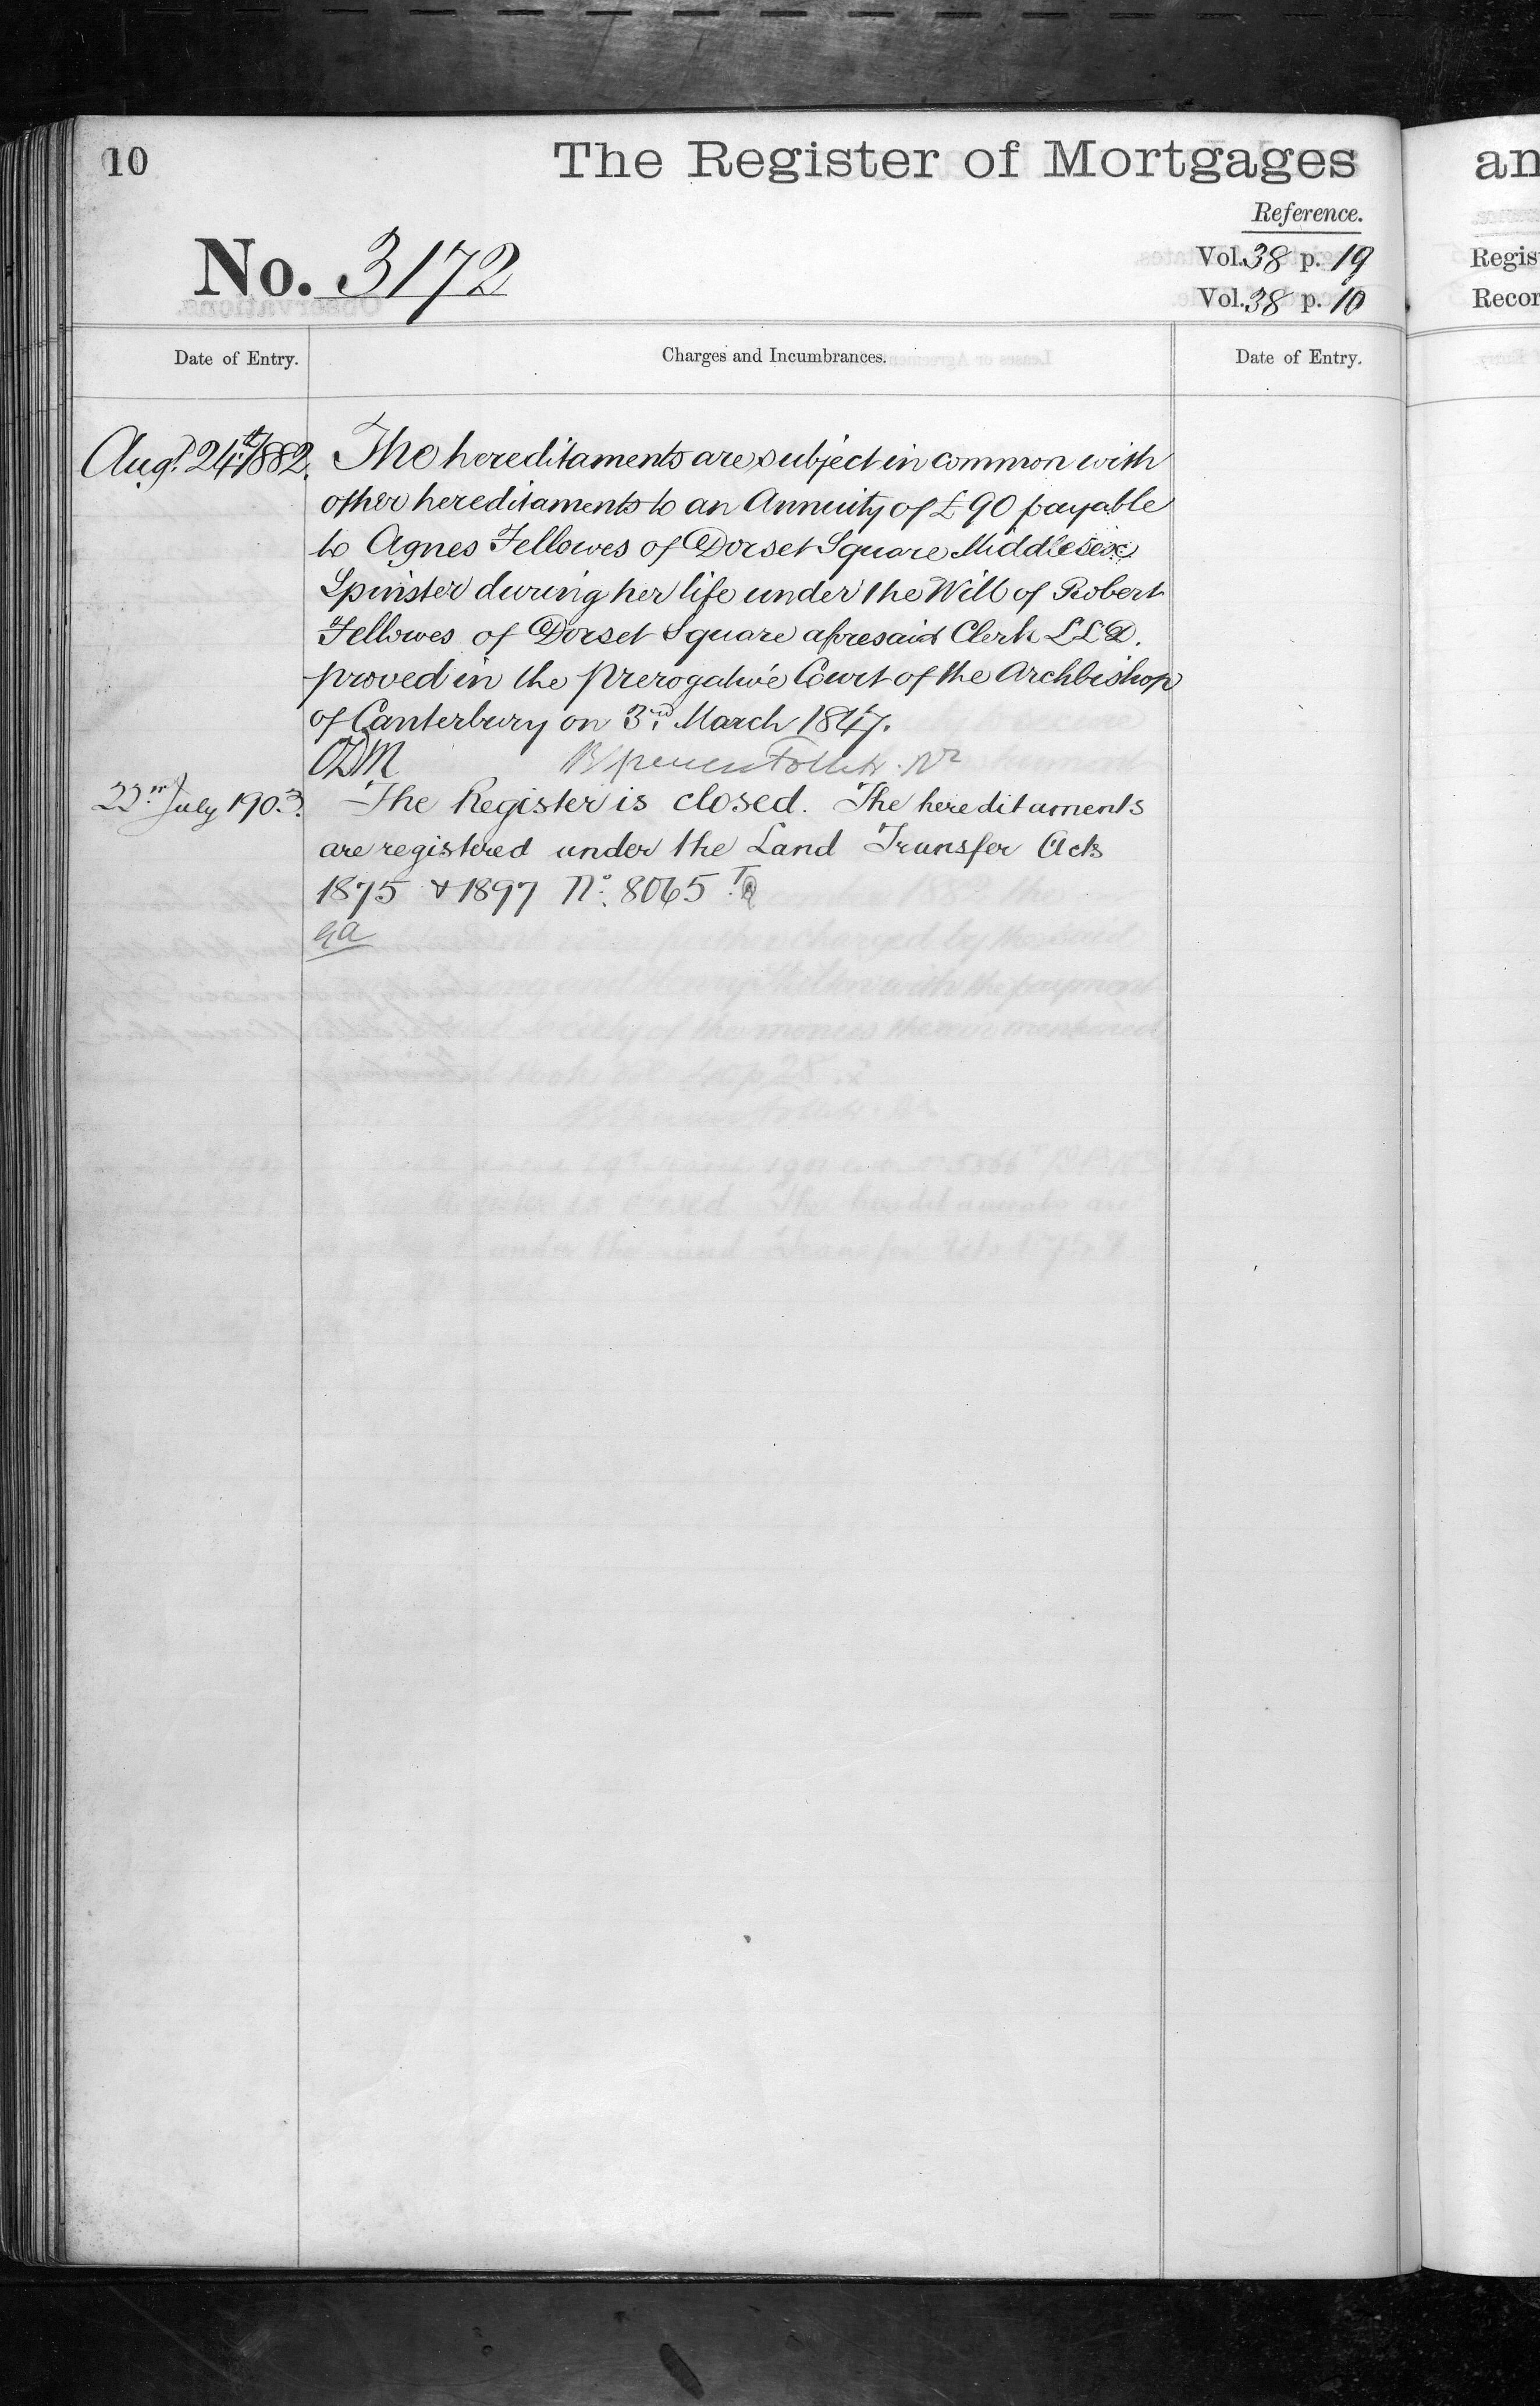 10
The Register of Mortgages
an
Reference.
No. 3172
Vol. 38 p. 19
Regis
Vol. 38 p. 10
Recor
Date of Entry.
Charges and Incumbrances.
Date of Entry.
Augt. 24th 1882.
The hereditaments are subject in common with
other hereditaments to an Annuity of £90 payable
to Agnes Fellowes of Dorset Square Middlesex
Spinster during her life under the Will of Robert
Fellowes of Dorset Square aforesaid Clerk LLD.
proved in the Prerogative Court of the Archbishop
of Canterbury on 3rd March 1847.
22nd July 1903.
The Register is closed. The hereditaments
are registered under the Land Transfer Acts
1875 & 1897 No. 8065